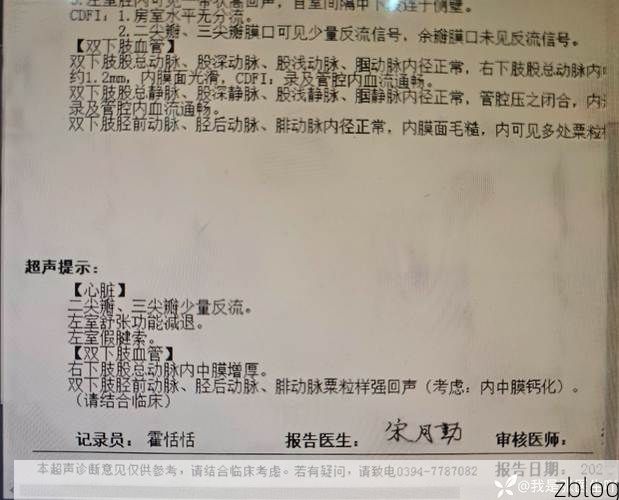 3.左室腔内可见一带状强回声，自室间隔中下段连于侧壁。
CDFI：1.房室水平无分流。
2.二尖瓣、三尖瓣膜口可见少量反流信号，余瓣膜口未见反流信号。
【双下肢血管】
双下肢股总动脉、股深动脉、股浅动脉、腘动脉内径正常，右下肢股总动脉内
约1.2mm，内膜面光滑，CDFI：录及管腔内血流通畅。
双下肢股总静脉、股深静脉、股浅静脉、腘静脉内径正常，管腔压之闭合，内
录及管腔内血流通畅。
双下肢胫前动脉、胫后动脉、腓动脉内径正常，内膜面毛糙，内可见多处粟粒
超声提示：
【心脏】
二尖瓣、三尖瓣少量反流。
左室舒张功能减退。
左室假腱索。
【双下肢血管】
右下肢股总动脉内中膜增厚。
双下肢胫前动脉、胫后动脉、腓动脉粟粒样强回声（考虑：内中膜钙化）。
（请结合临床）
记录员：霍恬恬 报告医生：宋月勤 审核医师：
本超声诊断意见仅供参考，请结合临床考虑。若有疑问，请致电0394-7787082 报告日期：202
@我是
zbloo